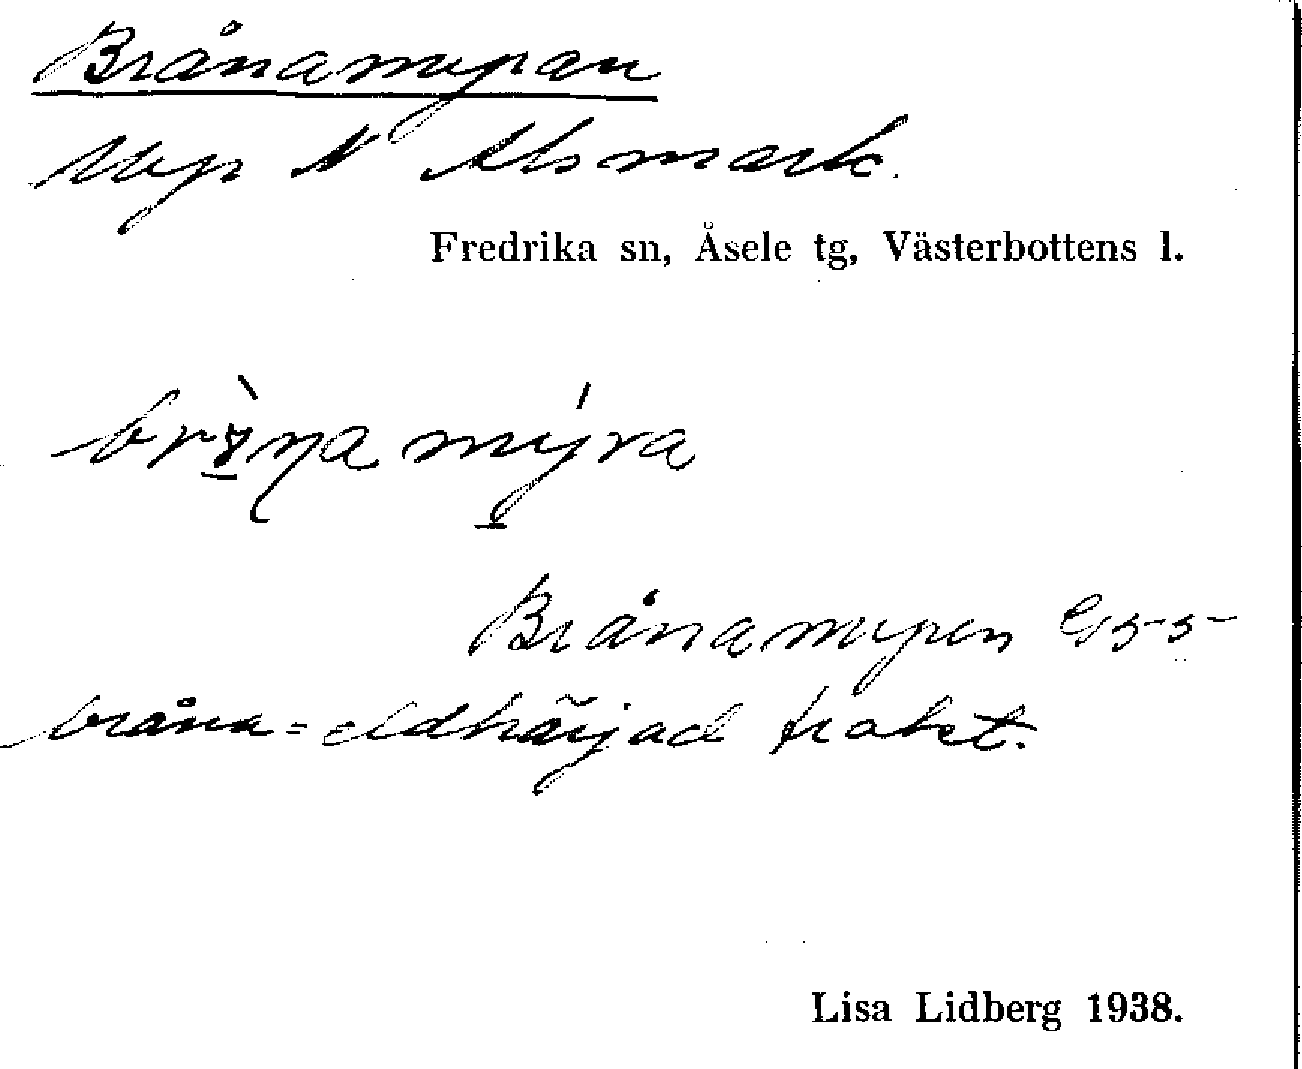 Brånamyran
Myr N Alsmark.
Fredrika sn, Åsele tg, Västerbottens l.
myra
Brånamyren G 55
bråna = eldhärjad trakt.
Lisa Lidberg 1938.